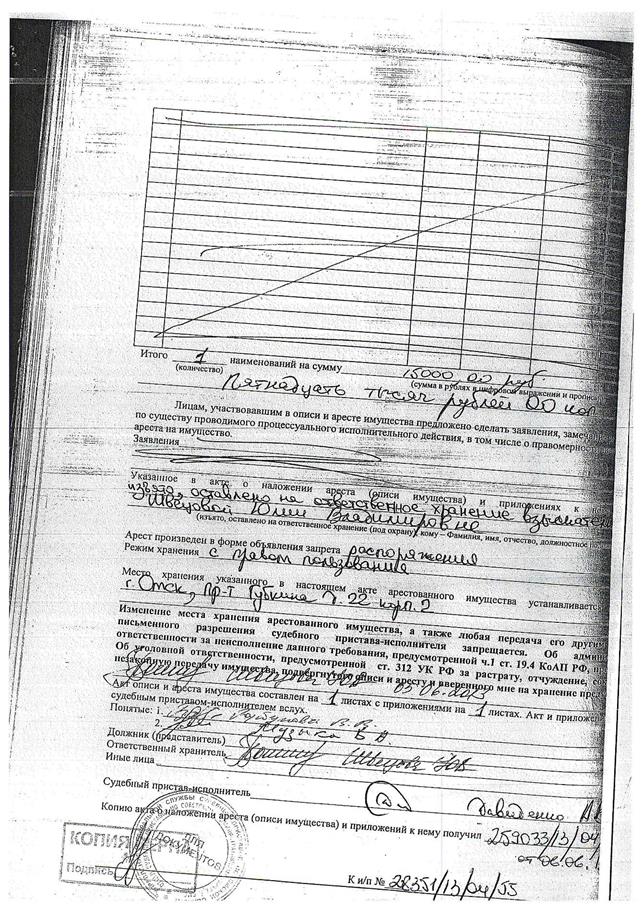 Итого 1 наименований на сумму 15000 00 руб.
(количество) (сумма в рублях в цифровом выражении и пропис
Пятнадцать тысяч рублей 00 коп
Лицам, участвовавшим в описи и аресте имущества предложено сделать заявления, замеча
по существу проводимого процессуального исполнительного действия, в том числе о правомерност
ареста на имущество.
Заявления
Указанное в акте о наложении ареста (описи имущества) и приложениях к н
изъято, оставлено на ответственное хранение взыскател
Швецовой Юлии Владимировне
(изъято, оставлено на ответственное хранение (под охрану) кому – Фамилия, имя, отчество, должностное по
Арест произведен в форме объявления запрета распоряжения
Режим хранения с правом пользования
Место хранения указанного в настоящем акте арестованного имущества устанавливается
г. Омск, пр-т Губкина д. 22 корп. 2
Изменение места хранения арестованного имущества, а также любая передача его другим
письменного разрешения судебного пристава-исполнителя запрещается. Об админ
ответственности за неисполнение данного требования, предусмотренной ч.1 ст. 19.4 КоАП РФ, пр
Об уголовной ответственности, предусмотренной ст. 312 УК РФ за растрату, отчуждение, со
незаконную передачу имущества, подвергнутого описи и аресту и вверенного мне на хранение пред
Швецова Ю.В. 05.06.2013
Акт описи и ареста имущества составлен на 1 листах с приложениями на 1 листах. Акт и приложен
судебным приставом-исполнителем вслух.
Понятые: 1. В.В.
2. Музыка В А
Должник (представитель)
Ответственный хранитель Швецова Ю.В.
Иные лица
Судебный пристав-исполнитель Давиденко А.
Копию акта о наложении ареста (описи имущества) и приложений к нему получил 259033/13/04/
от 06.06.1
КОПИЯ
Подпись
ДЛЯ
ДОКУМЕНТОВ
К и/п № 28351/13/04/55